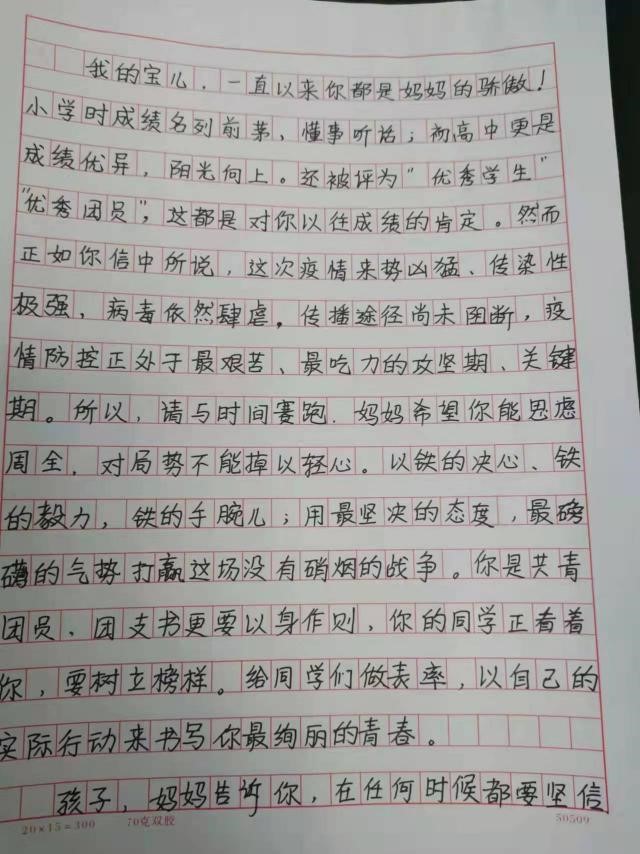 我的宝儿，一直以来你都是妈妈的骄傲！
小学时成绩名列前茅、懂事听话；初高中更是
成绩优异，阳光向上。还被评为“优秀学生”
“优秀团员”，这都是对你以往成绩的肯定。然而
正如你信中所说，这次疫情来势凶猛、传染性
极强，病毒依然肆虐，传播途径尚未阻断，疫
情防控正处于最艰苦、最吃力的攻坚期、关键
期。所以，请与时间赛跑．妈妈希望你能思虑
周全．对局势不能掉以轻心。以铁的决心、铁
的毅力，铁的手腕儿；用最坚决的态度，最磅
礴的气势打赢这场没有硝烟的战争。你是共青
团员、团支书更要以身作则，你的同学正看着
你，要树立榜样。给同学们做表率，以自己的
实际行动来书写你最绚丽的青春。
孩子，妈妈告诉你，在任何时候都要坚信
20×15=300 70克双胶 50509